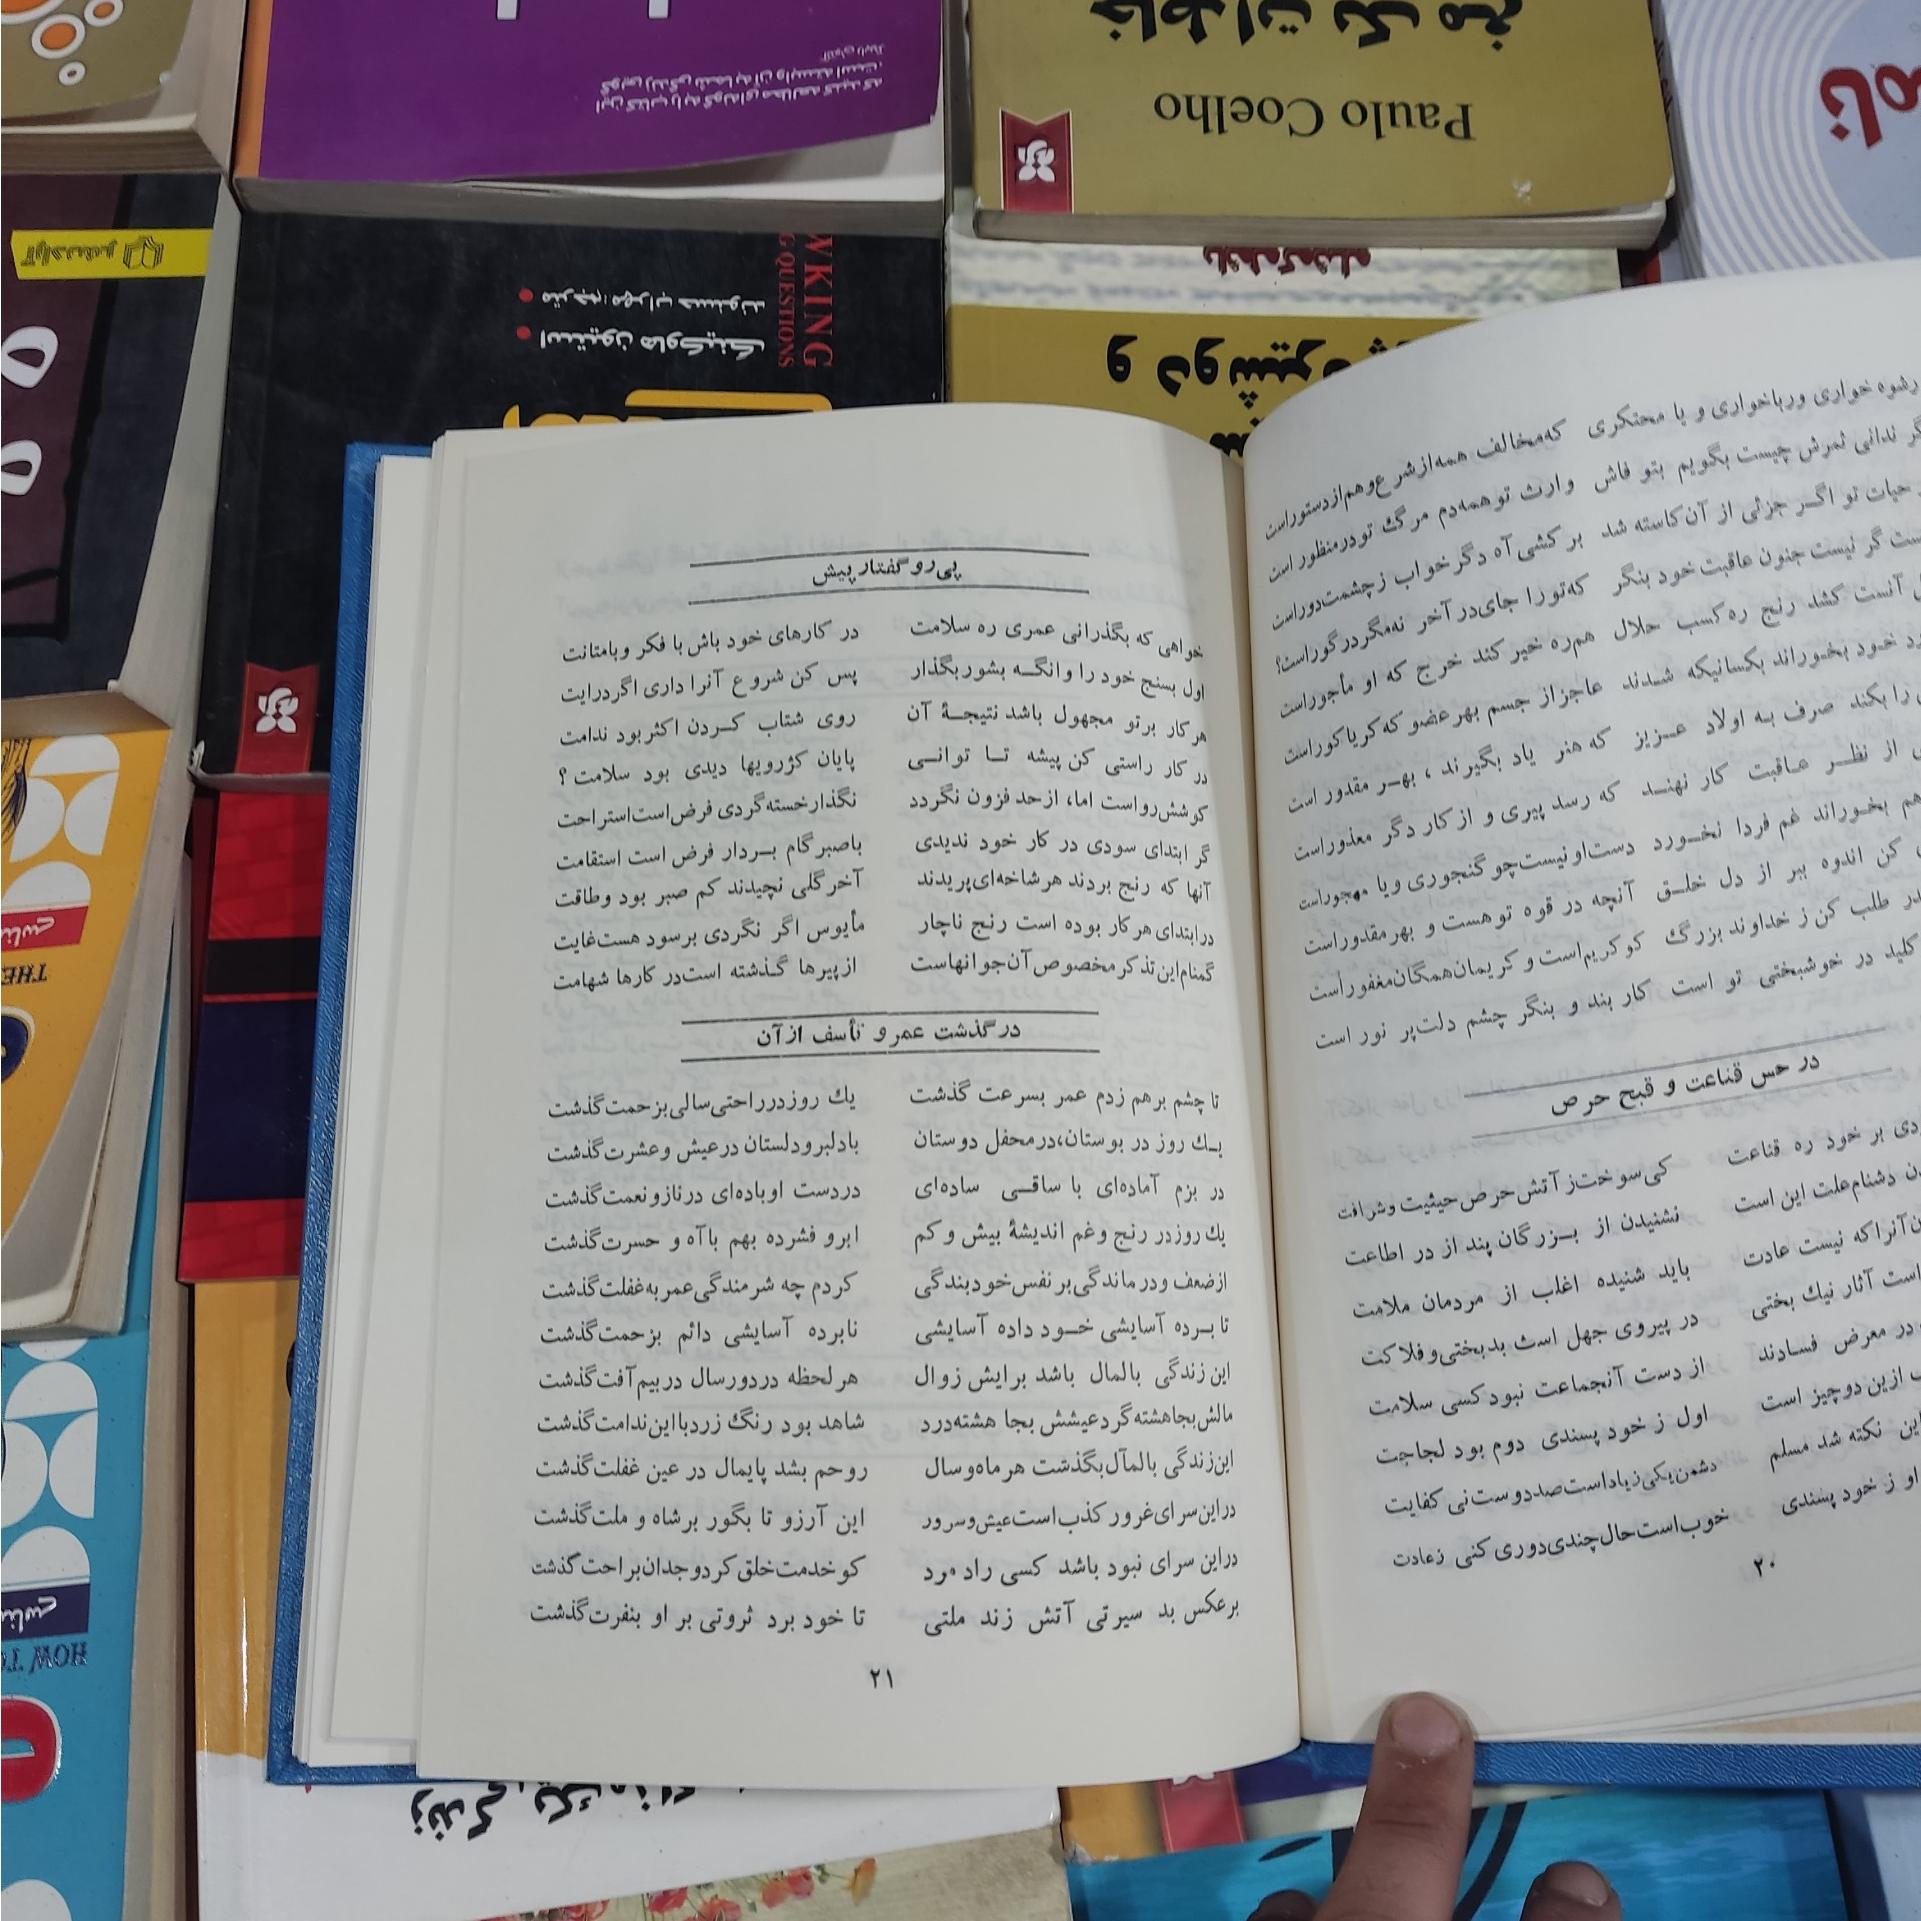 Paulo Coelho
خاطرات یک مغ
نامه
استیون هاوکینگ
مترجم: مهراب حسنوند
WKING
G QUESTIONS
و دوشیزه
پائولو کوئیلو
THE
HOW TO
زندگی
رشوه خواری ورباخواری و یا محتکری که مخالف همه از شرع و هم از دستور است
گر ندانی ثمرش چیست بگویم بتو فاش وارث تو همه دم مرگ تو در منظور است
حیات تو اگر جزئی از آن کاسته شد بر کشی آه دگر خواب ز چشمت دور است
گر نیست جنون عاقبت خود بنگر که تو را جای در آخر نه مگر در گور است؟
آنست کشد رنج ره کسب حلال هم ره خیر کند خرج که او مأجور است
خود بخوراند بکسانیکه شدند عاجز از جسم بهر عضو که کر یا کور است
را بکند صرف به اولاد عزیز که هنر یاد بگیرند ، بهر مقدور است
از نظر عاقبت کار نهند که رسد پیری و از کار دگر معذور است
هم بخوراند غم فردا نخورد دست او نیست چو گنجوری و یا مهجور است
کن اندوه ببر از دل خلق آنچه در قوه تو هست و بهر مقدور است
در طلب کن ز خداوند بزرگ کو کریم است و کریمان همگان مغفور است
کلید در خوشبختی تو است کار بند و بنگر چشم دلت پر نور است
در حس قناعت و قبح حرص
بر خود ره قناعت کی سوخت ز آتش حرص حیثیت و شرافت
دشنام علت این است نشنیدن از بزرگان پند از در اطاعت
آنرا که نیست عادت باید شنیده اغلب از مردمان ملامت
است آثار نیك بختی در پیروی جهل است بدبختی و فلاکت
در معرض فسادند از دست آنجماعت نبود کسی سلامت
ازین دو چیز است اول ز خود پسندی دوم بود لجاجت
این نکته شد مسلم دشمن یکی زیاد است صد دوست نی کفایت
او ز خود پسندی خوب است حال چندی دوری کنی زعادت
۲۰
پی رو گفتار پیش
خواهی که بگذرانی عمری ره سلامت در کارهای خود باش با فکر و بامتانت
اول بسنج خود را وانگه بشور بگذار پس کن شروع آنرا داری اگر درایت
هر کار بر تو مجهول باشد نتیجهٔ آن روی شتاب کردن اکثر بود ندامت
در کار راستی کن پیشه تا توانی پایان کژرویها دیدی بود سلامت ؟
کوشش رواست اما، از حد فزون نگردد نگذار خسته گردی فرض است استراحت
گر ابتدای سودی در کار خود ندیدی باصبر گام بردار فرض است استقامت
آنها که رنج بردند هر شاخه‌ای پریدند آخر گلی نچیدند کم صبر بود وطاقت
در ابتدای هر کار بوده است رنج ناچار مأیوس اگر نگردی برسود هست غایت
گمنام این تذکر مخصوص آن جوانهاست از پیرها گذشته است در کارها شهامت
در گذشت عمر و تأسف از آن
تا چشم بر هم زدم عمر بسرعت گذشت یك روز در راحتی سالی بزحمت گذشت
یك روز در بوستان، در محفل دوستان بادلبر و دلستان در عیش وعشرت گذشت
در بزم آماده‌ای با ساقی ساده‌ای در دست او باده‌ای در ناز و نعمت گذشت
یك روز در رنج وغم اندیشهٔ بیش و کم ابرو فشرده بهم با آه و حسرت گذشت
از ضعف و درماندگی بر نفس خود بندگی کردم چه شرمندگی عمر به غفلت گذشت
تا برده آسایشی خود داده آسایشی نابرده آسایشی دائم بزحمت گذشت
این زندگی بالمال باشد برایش زوال هر لحظه در دور سال در بیم آفت گذشت
مالش بجا هشته گرد عیشش بجا هشته درد شاهد بود رنگ زرد با این ندامت گذشت
این زندگی بالمآل بگذشت هر ماه و سال روحم بشد پایمال در عین غفلت گذشت
در این سرای غرور کذب است عیش و سرور این آرزو تا بگور بر شاه و ملت گذشت
در این سرای نبود باشد کسی راد مرد کو خدمت خلق کرد وجدان براحت گذشت
بر عکس بد سیرتی آتش زند ملتی تا خود برد ثروتی بر او بنفرت گذشت
۲۱